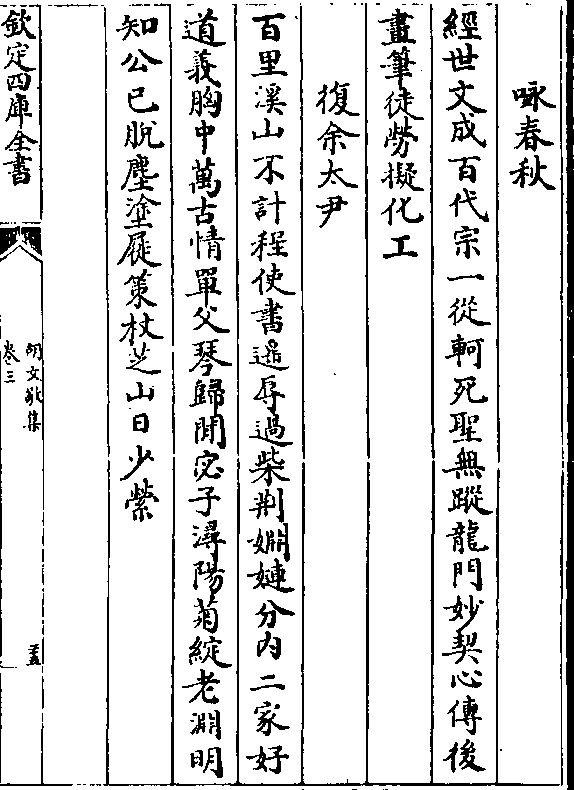 咏春秋
經世文成百代宗一從軻死聖無蹤龍門妙契心傳後
畫筆徒勞擬化工
復余太尹
百里溪山不計程使書遥辱過柴荆婣婕分内二家好
道義胸中萬古情單父琴歸閒宓子潯陽菊綻老淵明
知公已脱塵塗屐策杖芝山日少縈
欽定四庫全書
胡文敬集
卷三